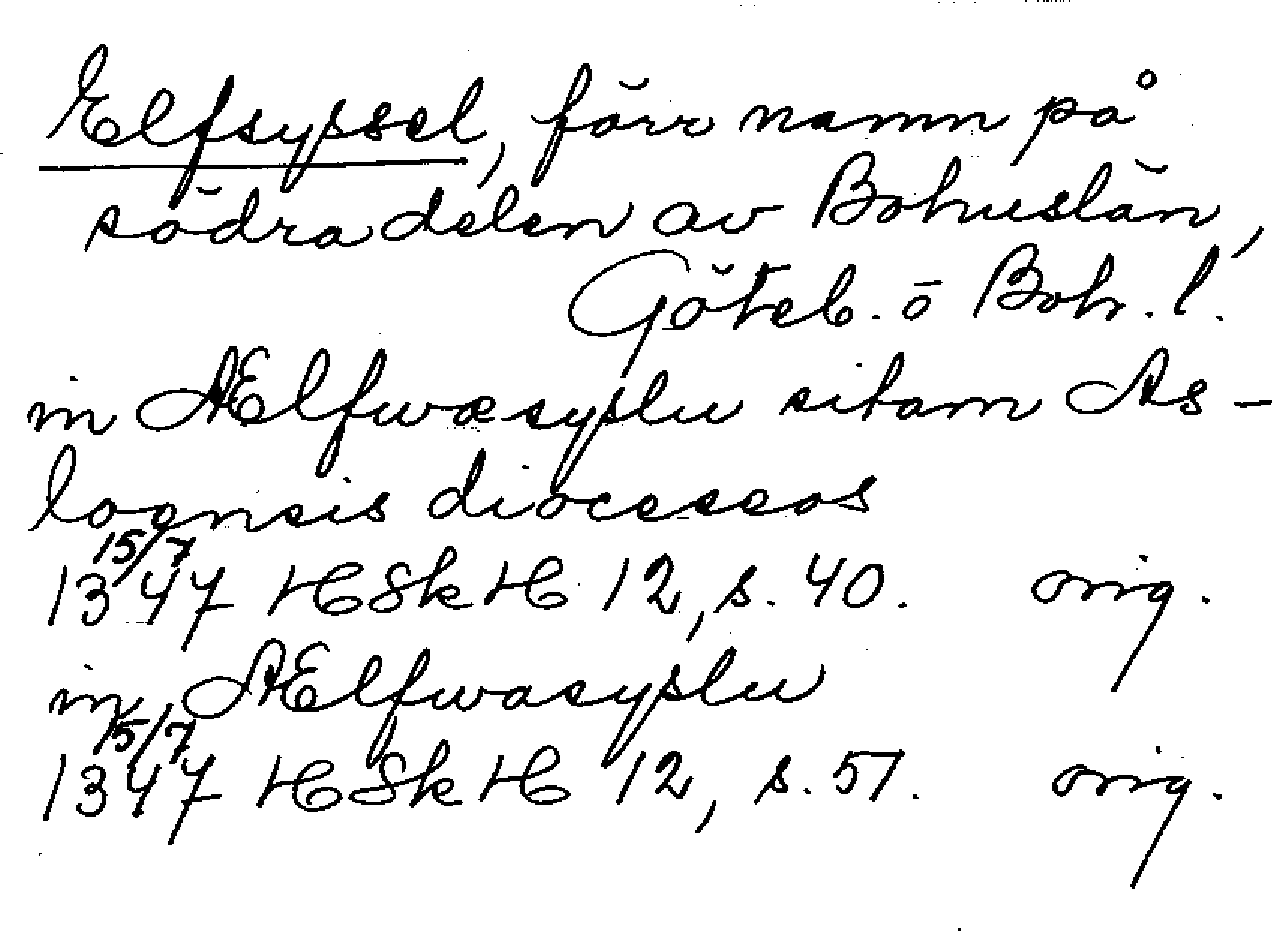 Elfsyssel, förr namn på
södra delen av Bohuslän,
Göteb. o Boh. l.
in Ælfwæsyslu sitam As-
loensis dioceseos
15/7
1347 HSkH 12, s. 40. orig.
in Ælfwasyslu
15/7
1347 HSkH 12, s. 51. orig.